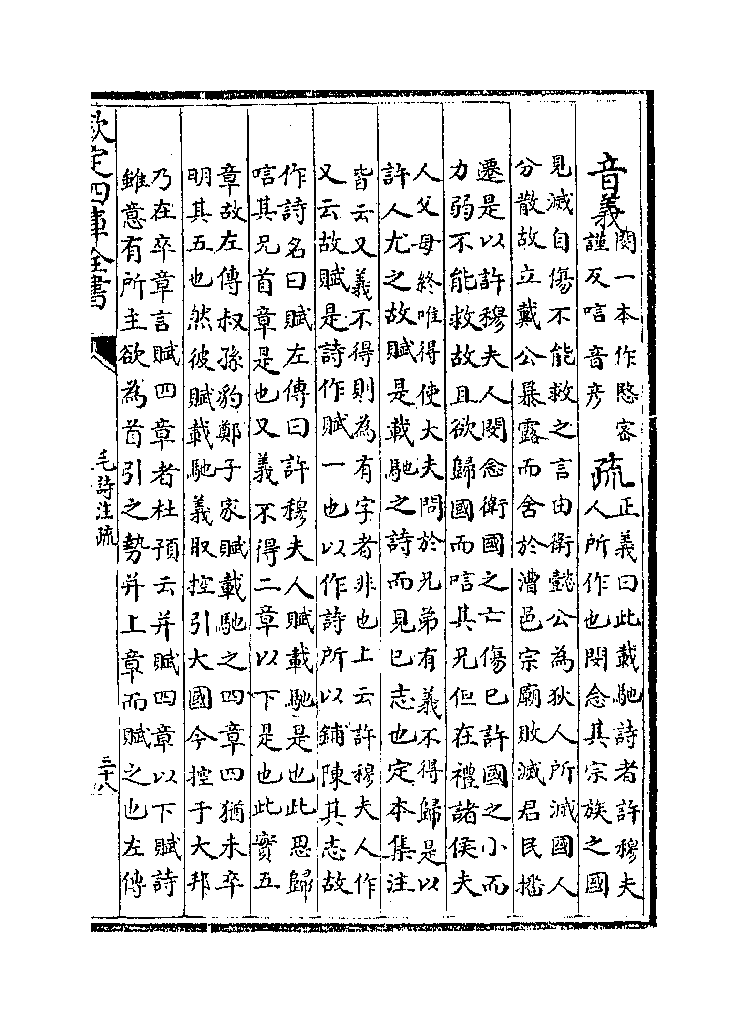 音義閔一本作愍密
謹反唁音彦
疏正義曰此載馳詩者許穆夫
人所作也閔念其宗族之國
見滅自傷不能救之言由衛懿公為狄人所滅國人
分散故立戴公暴露而舍於漕邑宗廟敗滅君民播
遷是以許穆夫人閔念衛國之亡傷已許國之小而
力弱不能救故且欲歸國而唁其兄但在禮諸侯夫
人父母終唯得使大夫問於兄弟有義不得歸是以
許人尤之故賦是載馳之詩而見已志也定本集注
皆云又義不得則為有字者非也上云許穆夫人作
又云故賦是詩作賦一也以作詩所以鋪陳其志故
作詩名曰賦左傳曰許穆夫人賦載馳是也此思歸
唁其兄首章是也又義不得二章以下是也此實五
章故左傳叔孫豹鄭子家賦載馳之四章四猶未卒
明其五也然彼賦載馳義取控引大國今控于大邦
乃在卒章言賦四章者杜預云并賦四章以下賦詩
雖意有所主欲為首引之勢并上章而賦之也左傳
欽定四庫全書
毛詩注疏
三十八